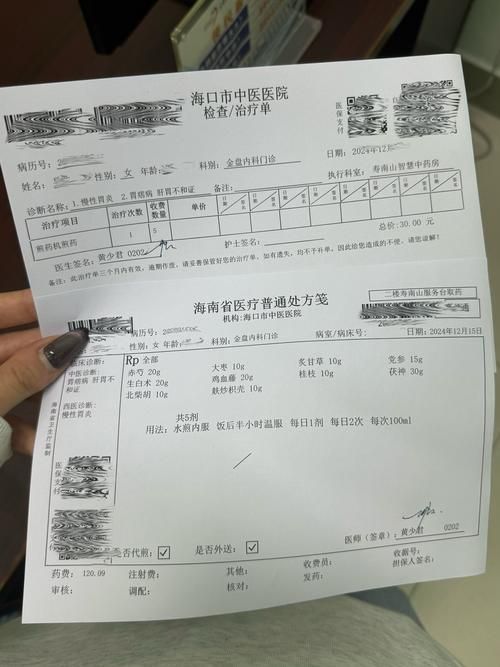 海口市中医医院
检查/治疗单
医保支付
病历号：
日期：2024年12月
姓名： 性别：女 年龄： 科别：金盘内科门诊
执行科室：寿南山智慧中药房
诊断名称：1.慢性胃炎 2.胃痞病 肝胃不和证 备注：
治疗项目 治疗次数 收费数量 单价 日期 签名 日期 签名 日期 签名 日期 签名 日期 签名 日期 签名 日期 签名 日期 签名
煎药机煎药 1 5
总价：30.00 元
医生签名：黄少君 0202 护士签名：
备注：此治疗单三个月内有效，逾期作废，请妥善保管好您的治疗单，如有遗失，均不予补单，因此给您造成的不便，请您谅解！
海南省医疗普通处方笺
机构：海口市中医医院
二楼寿南山服务台取药
病历号：
病室/病床号：
日期：2024年12月15日
性别：女 年龄： 科别：金盘内科门诊
床诊断：
中医诊断：
胃痞病 肝胃不和证
西医诊断：
慢性胃炎
海南省卫生厅监制
医保支付
Rp 全部
赤芍 20g 大枣 10g 炙甘草 10g 党参 15g
生白术 20g 鸡血藤 20g 桂枝 10g 茯神 30g
北柴胡 10g 麸炒枳壳 10g
共5剂
用法：水煎内服 饭后半小时温服 每日1剂 每日2次 每次100ml
医师（签章）：黄少君 0202
是否代煎：☑ 是否外送：☑
药费：120.09 注射费： 其他： 收费员： 收据号：
审核： 调配： 核对： 发药： 担保人签名：